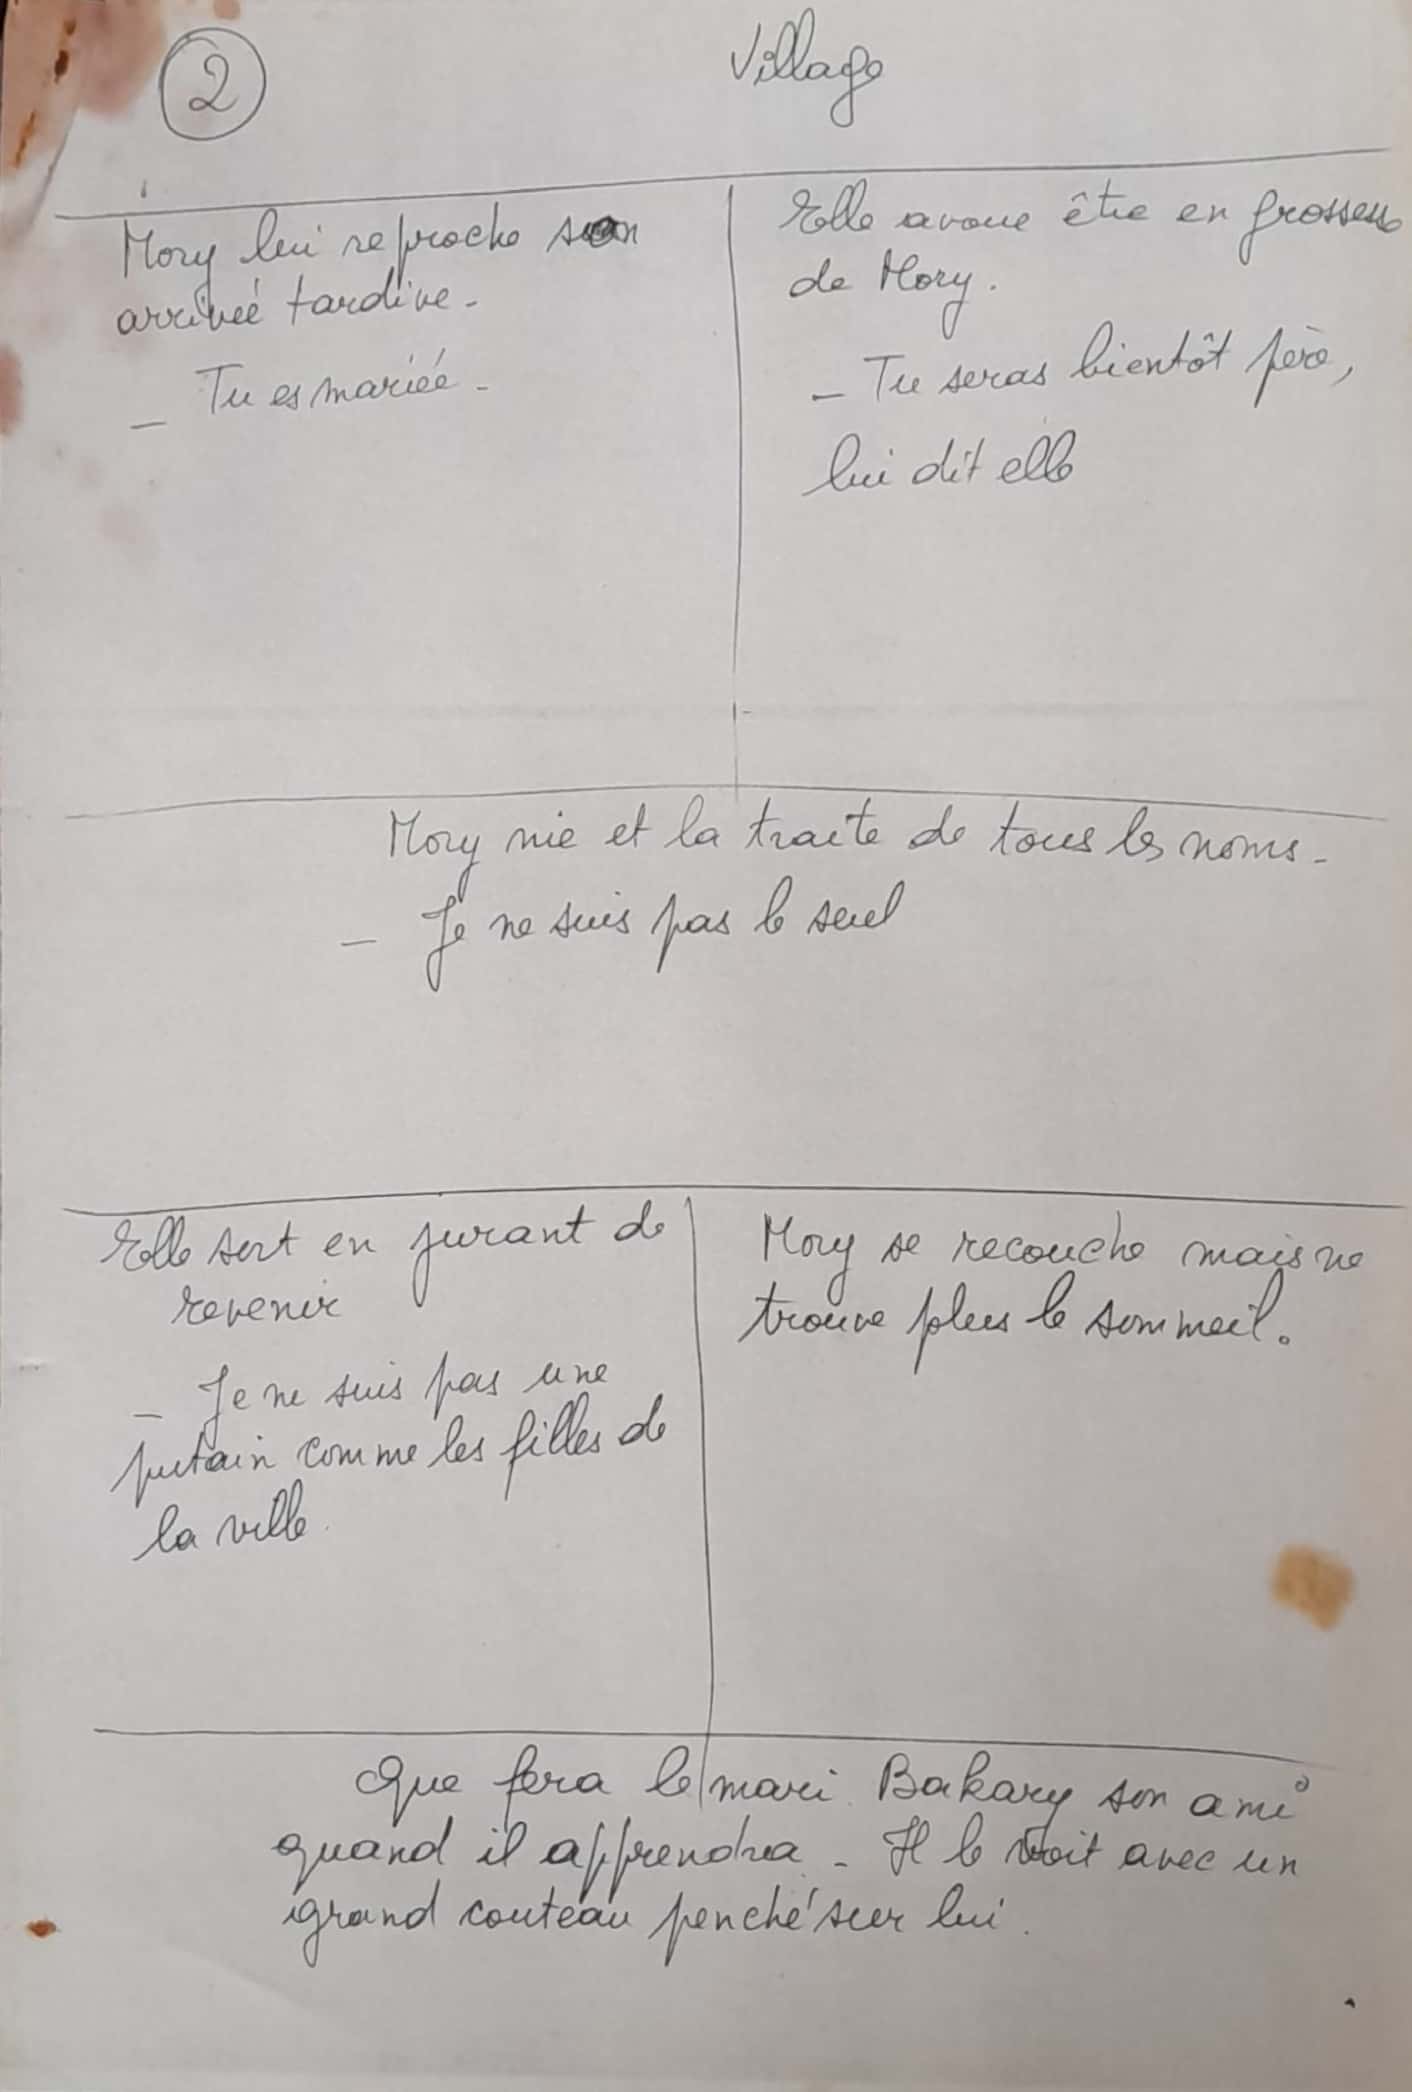 2
Village
Mory lui reproche son
arriveé tardive.
_ Tu es mariée.
Elle avoue être en grossesse
de Mory.
_ Tu seras bientôt père,
lui dit elle
Mory nie et la traite de tous les noms.
_ Je ne suis pas le seul
Elle sort en jurant de
revenir
_ Je ne suis pas une
putain comme les filles de
la ville.
Mory se recouche mais ne
trouve plus le sommeil.
Que fera le mari Bakary son ami
quand il apprendra. Il le voit avec un
grand couteau penché sur lui.